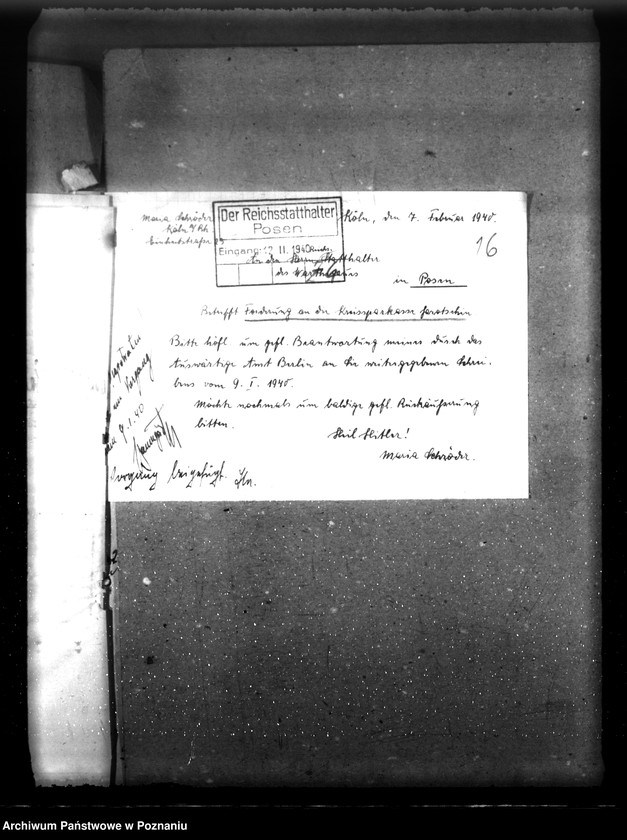 Maria Schröder
Köln a/Rh.
Köln, den 7. Februar 1940.
Der Reichsstatthalter
Posen
Eingang: 12. II. 1940
16
An den Herrn Statthalter
des Warthegaues
in Posen
Betrifft Forderung an die Kreissparkasse Jarotschin
Bitte höfl. um gefl. Beantwortung meines durch das
Auswärtige Amt Berlin an Sie weitergegebenen Schrei-
bens vom 9. I. 1940.
Möchte nochmals um baldige gefl. Rückäußerung
bitten.
Heil Hitler!
Maria Schröder.
Vorgang
9.1.40
Vorgang beigefügt.
Archiwum Państwowe w Poznaniu